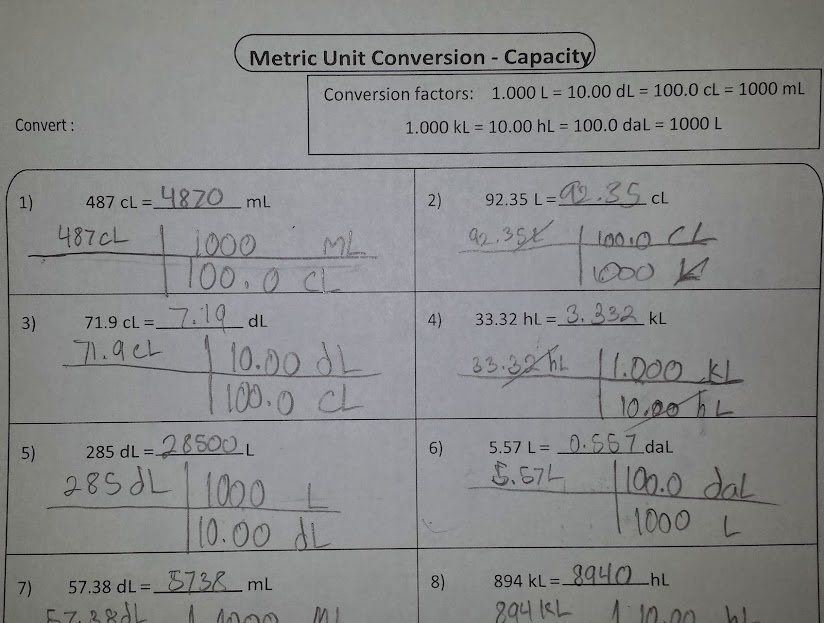 Metric Unit Conversion - Capacity
Conversion factors: 1.000 L = 10.00 dL = 100.0 cL = 1000 mL
1.000 kL = 10.00 hL = 100.0 daL = 1000 L
Convert :
1) 487 cL = 4870 mL
487 cL 1000 mL
100.0 cL
2) 92.35 L = 92.35 cL
92.35 L 100.0 cL
1000 L
3) 71.9 cL = 7.19 dL
71.9 cL 10.00 dL
100.0 cL
4) 33.32 hL = 3.332 kL
33.32 hL 1.000 kL
10.00 hL
5) 285 dL = 28500 L
285 dL 1000 L
10.00 dL
6) 5.57 L = 0.557 daL
5.57 L 100.0 daL
1000 L
7) 57.38 dL = 5738 mL
57.38 dL 1000 mL
8) 894 kL = 8940 hL
894 kL 10.00 hL